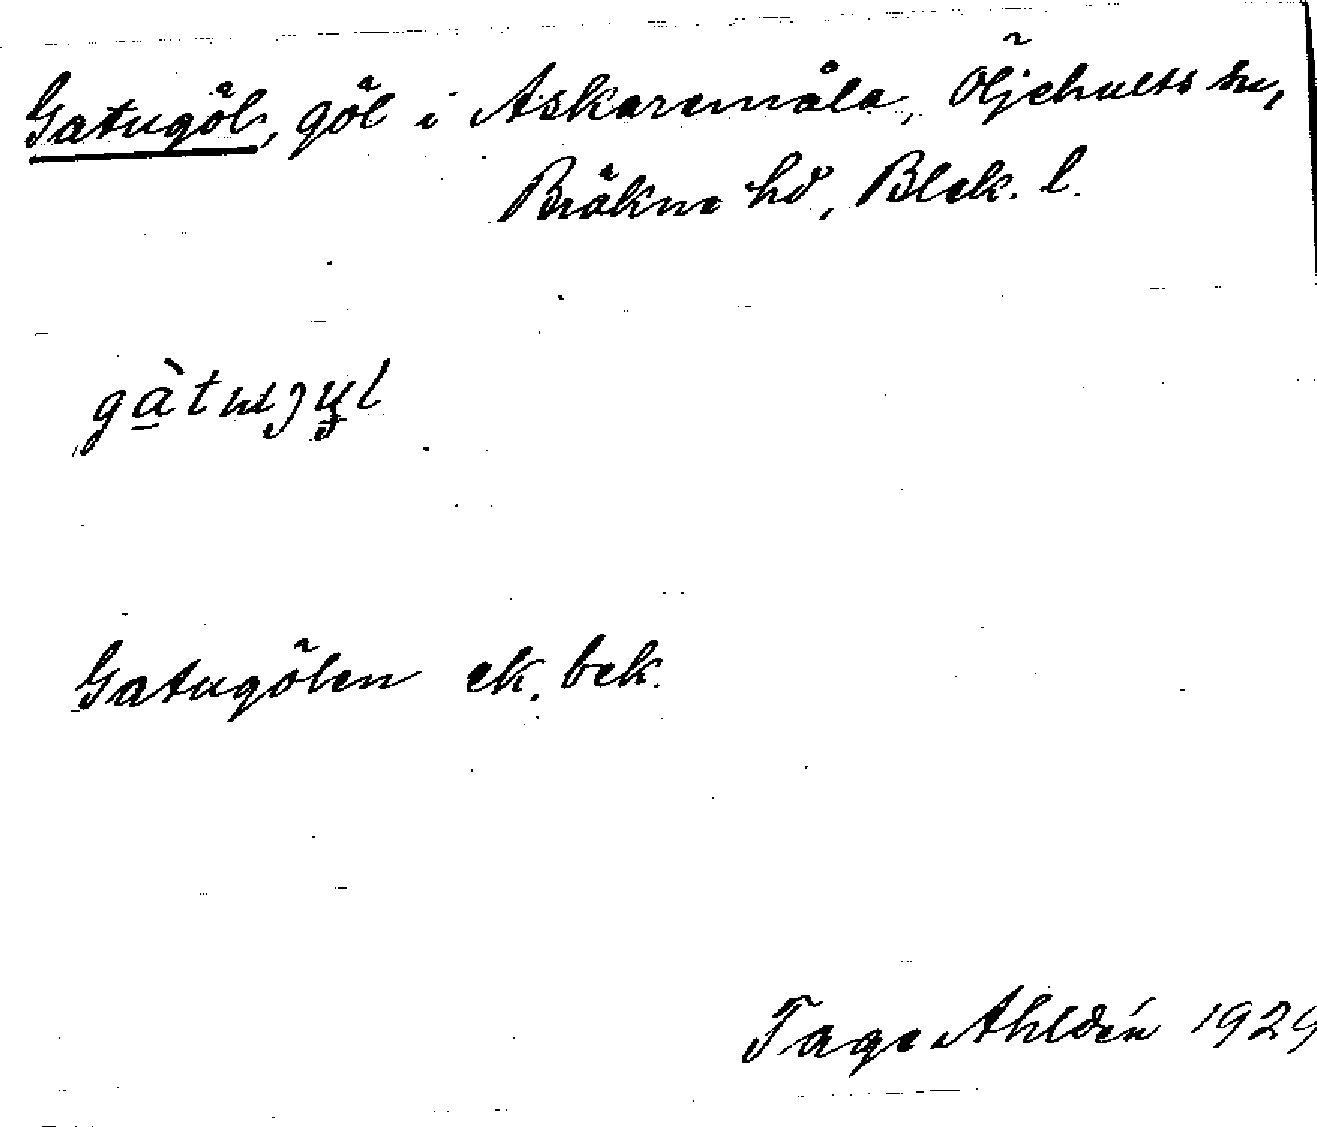 Gatugöl, göl i Askaremåla, Öljehults sn,
Bräkne hd, Blek. l.
gàtuȷyl
Gatugölen ek. bek.
Tage Ahldén 1929